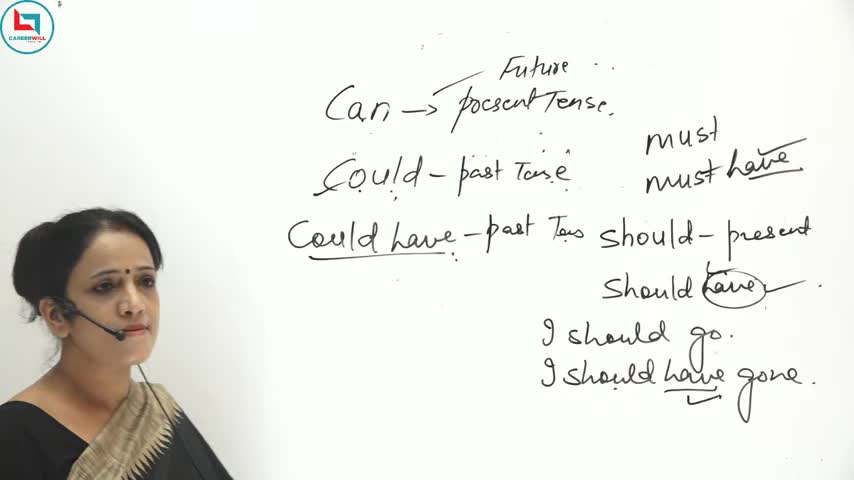 CAREERWILL
Future ..
Can → present Tense.
Could - past Tense
must
must have
Could have - past Tens
should - present
Should have
I should go.
I should have gone.